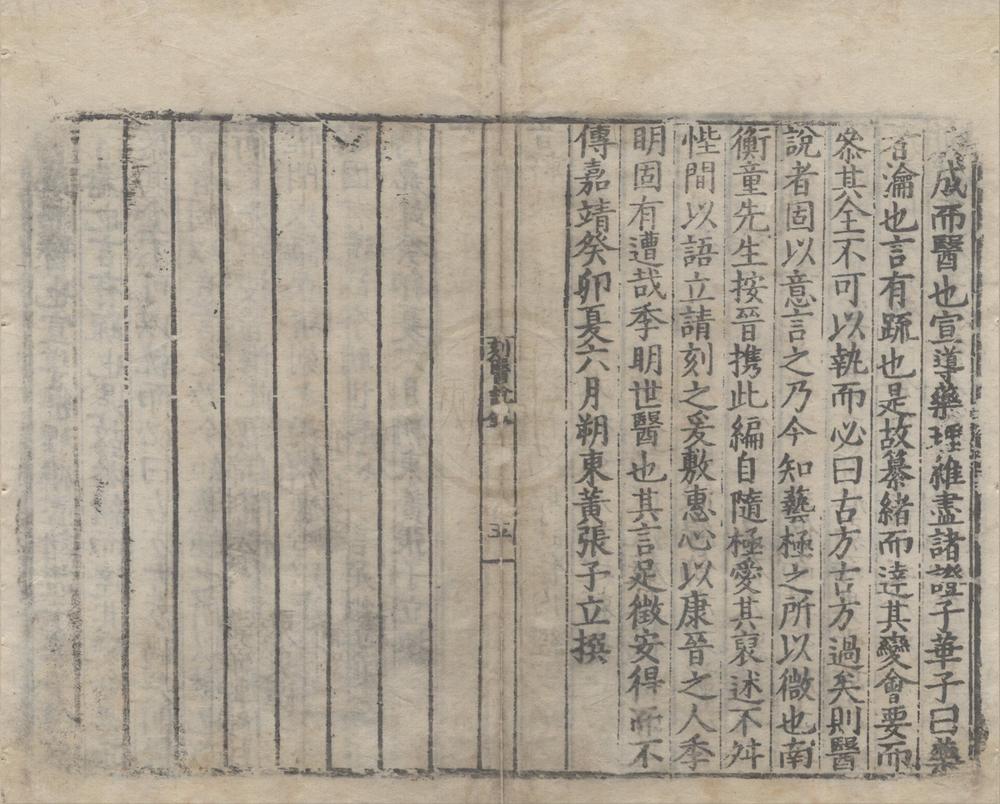 成而醫也宣導藥理雖盡諸證子華子曰藥
者瀹也言有疏也是故纂緒而達其變會要而
叅其全不可以執而必曰古方古方過矣則醫
說者固以意言之乃今知藝極之所以微也南
衡童先生按晉携此編自隨極愛其裒述不舛
悂間以語立請刻之爰敷惠心以康晉之人季
明固有遭哉季明世醫也其言足徵安得而不
傳嘉靖癸卯夏六月朔東黃張子立撰
刻醫說敘
五